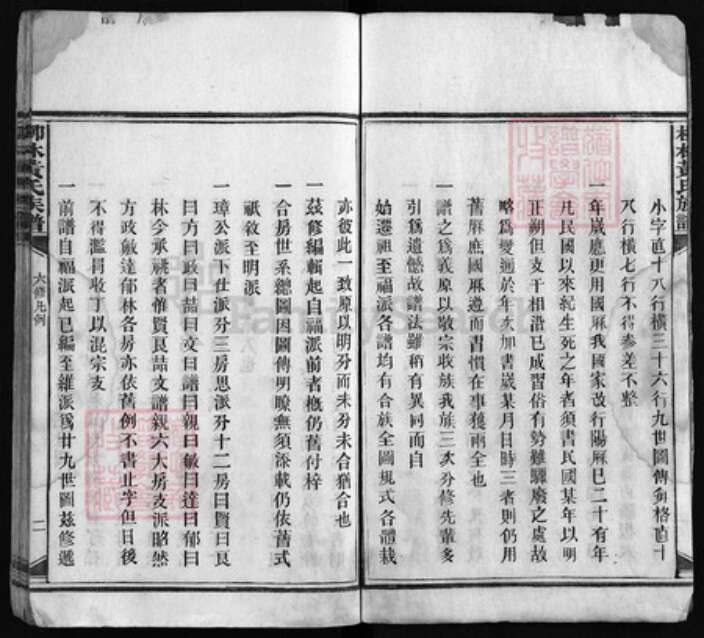 柳林黃氏族譜
小字直十八行橫三十六行九世圖傳每格直十
八行橫七行不得參差不整
一年歲應更用國厤我國家改行陽厤已二十有年
凡民國以來紀生死之年者須書民國某年以明
正朔但支干相沿已成習俗有勢難驟廢之處故
略爲變通於年次加書歲某月日時三者則仍用
舊厤庶國厤遵而書慣在事獲兩全也
一譜之爲義原以敬宗收族我族三次分修先輩多
引爲遺憾故譜法雖稍有異同而自
始遷祖至福派各譜均有合族全圖規式各體裁
亦彼此一致原以明分而未分未合猶合也
一茲修編輯起自福派前者槪仍舊付梓
一合房世系總圖因圖傳明瞭無須添載仍依舊式
祇敘至明派
一璋公派下仕派分三房思派分十二房曰賢曰良
曰方曰政曰喆曰文曰譜曰親曰敏曰達曰郁曰
林今承祧者惟賢良喆文譜親六大房支派昭然
方政敏達郁林各房亦依舊例不書止字但日後
不得濫冐收丁以混宗支
一前譜自福派起已編至維派爲廿九世圖茲修遞
柳林黃氏族譜
六修凡例
二
FamilySearch